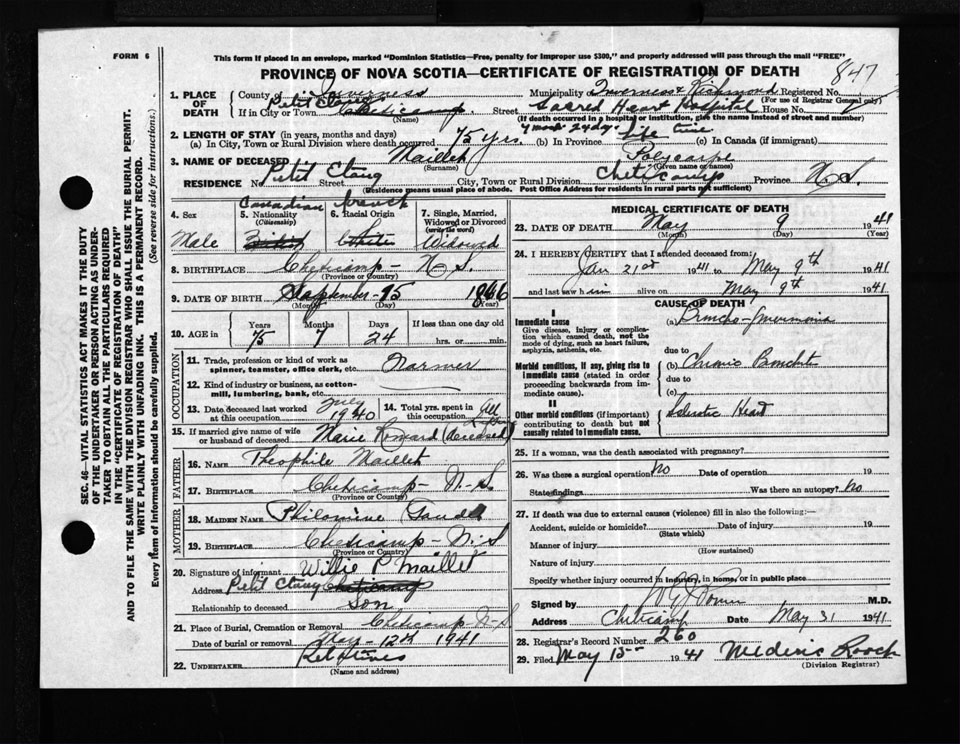 FORM 6
This form if placed in an envelope, marked "Dominion Statistics—Free, penalty for improper use $300," and properly addressed will pass through the mail "FREE"
PROVINCE OF NOVA SCOTIA—CERTIFICATE OF REGISTRATION OF DEATH
847
SEC. 46—VITAL STATISTICS ACT MAKES IT THE DUTY
OF THE UNDERTAKER OR PERSON ACTING AS UNDER-
TAKER TO OBTAIN ALL THE PARTICULARS REQUIRED
IN THE "CERTIFICATE OF REGISTRATION OF DEATH"
AND TO FILE THE SAME WITH THE DIVISION REGISTRAR WHO SHALL ISSUE THE BURIAL PERMIT.
WRITE PLAINLY WITH UNFADING INK. THIS IS A PERMANENT RECORD.
Every item of information should be carefully supplied. (See reverse side for instructions.)
1. PLACE OF DEATH
County of Inverness Municipality Inverness & Richmond Registered No.
(For use of Registrar General only)
Petit Etang
If in City, Town or Cheticamp Street Sacred Heart Hospital House No.
(Name) (If death occurred in a hospital or institution, give the name instead of street and number)
2. LENGTH OF STAY (in years, months and days) 7 mos 24 dys
(a) In City, Town or Rural Division where death occurred 75 yrs. (b) In Province Life time (c) In Canada (if immigrant)
3. NAME OF DECEASED Maillet Polycarpe
(Surname) (Given name or names)
RESIDENCE No. Petit Etang Street City, Town or Rural Division Cheticamp Province N.S.
(Residence means usual place of abode. Post Office Address for residents in rural parts not sufficient)
4. Sex Male
5. Nationality (Citizenship) Canadian British
6. Racial Origin French White
7. Single, Married, Widowed or Divorced (write the word) Widowed
8. BIRTHPLACE Cheticamp - N.S.
(Province or Country)
9. DATE OF BIRTH September 15 1866
(Month) (Day) (Year)
10. AGE in Years Months Days If less than one day old
75 7 24 hrs. or min.
OCCUPATION
11. Trade, profession or kind of work as spinner, teamster, office clerk, etc. Farmer
12. Kind of industry or business, as cotton-mill, lumbering, bank, etc.
13. Date deceased last worked at this occupation July 1940
14. Total yrs. spent in this occupation All
15. If married give name of wife or husband of deceased Marie (deceased)
FATHER
16. NAME Theophile Maillet
17. BIRTHPLACE Cheticamp - N.S.
(Province or Country)
MOTHER
18. MAIDEN NAME Philomine Gaudet
19. BIRTHPLACE Cheticamp - N.S
(Province or Country)
20. Signature of informant Willie P Maillet
Address Petit Etang Cheticamp
Relationship to deceased Son
21. Place of Burial, Cremation or Removal Cheticamp N-S
Date of burial or removal May - 12th 1941
22. UNDERTAKER Relatives
(Name and address)
MEDICAL CERTIFICATE OF DEATH
23. DATE OF DEATH May 9 1941
(Month) (Day) (Year)
24. I HEREBY CERTIFY that I attended deceased from:
Jan 21st 1941 to May 9th 1941
and last saw him alive on May 9th 1941
CAUSE OF DEATH
I
Immediate cause
Give disease, injury or complication which caused death, not the mode of dying, such as heart failure, asphyxia, asthenia, etc.
(a) Broncho-pneumonia
due to
Morbid conditions, if any, giving rise to immediate cause (stated in order proceeding backwards from immediate cause).
(b) Chronic Bronchitis
due to
(c)
II
Other morbid conditions (if important) contributing to death but not causally related to immediate cause.
Sclerotic Heart
25. If a woman, was the death associated with pregnancy?
26. Was there a surgical operation? No Date of operation 19
State findings Was there an autopsy? No
27. If death was due to external causes (violence) fill in also the following:—
Accident, suicide or homicide? Date of injury 19
(State which)
Manner of injury
(How sustained)
Nature of injury
Specify whether injury occurred in industry, in home, or in public place
Signed by M.D.
Address Cheticamp Date May 31 1941
28. Registrar's Record Number 260
29. Filed May 15 1941
(Division Registrar)